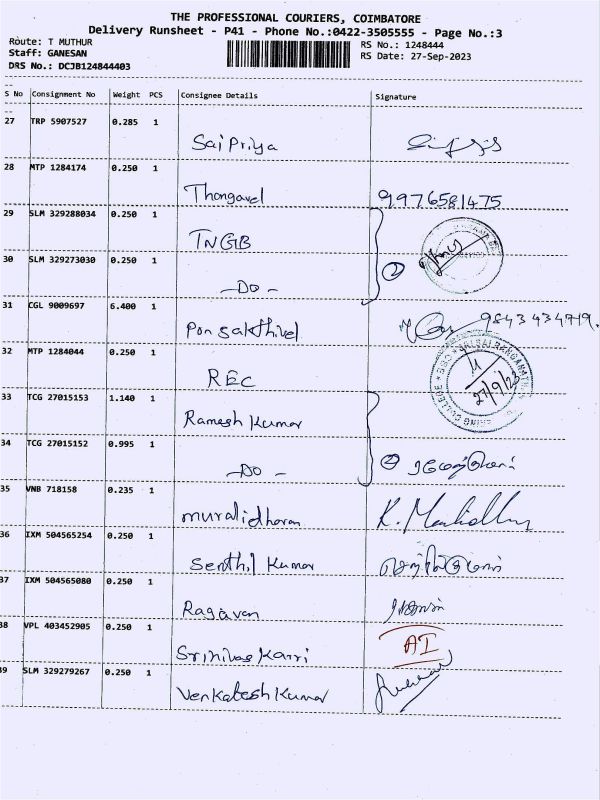 THE PROFESSIONAL COURIERS, COIMBATORE
Delivery Runsheet - P41 - Phone No.:0422-3505555 - Page No.:3
Route: T MUTHUR RS No.: 1248444
Staff: GANESAN RS Date: 27-Sep-2023
DRS No.: DCJB124844403
S No Consignment No Weight PCS Consignee Details Signature
27 TRP 5907527 0.285 1
Sai Priya
28 MTP 1284174 0.250 1
Thangavel 9976581475
29 SLM 329288034 0.250 1
TNGB
30 SLM 329273030 0.250 1
-DO- 2
31 CGL 9009697 6.400 1
Pon Sakthivel 9843434719.
32 MTP 1284044 0.250 1
REC 27/9/23
33 TCG 27015153 1.140 1
Ramesh Kumar
34 TCG 27015152 0.995 1
-DO- 2
35 VNB 718158 0.235 1
muralidharan
36 IXM 504565254 0.250 1
Senthil Kumar
37 IXM 504565080 0.250 1
Ragavan
38 VPL 403452905 0.250 1
Srinivas Karri AI
39 SLM 329279267 0.250 1
Venkatesh Kumar